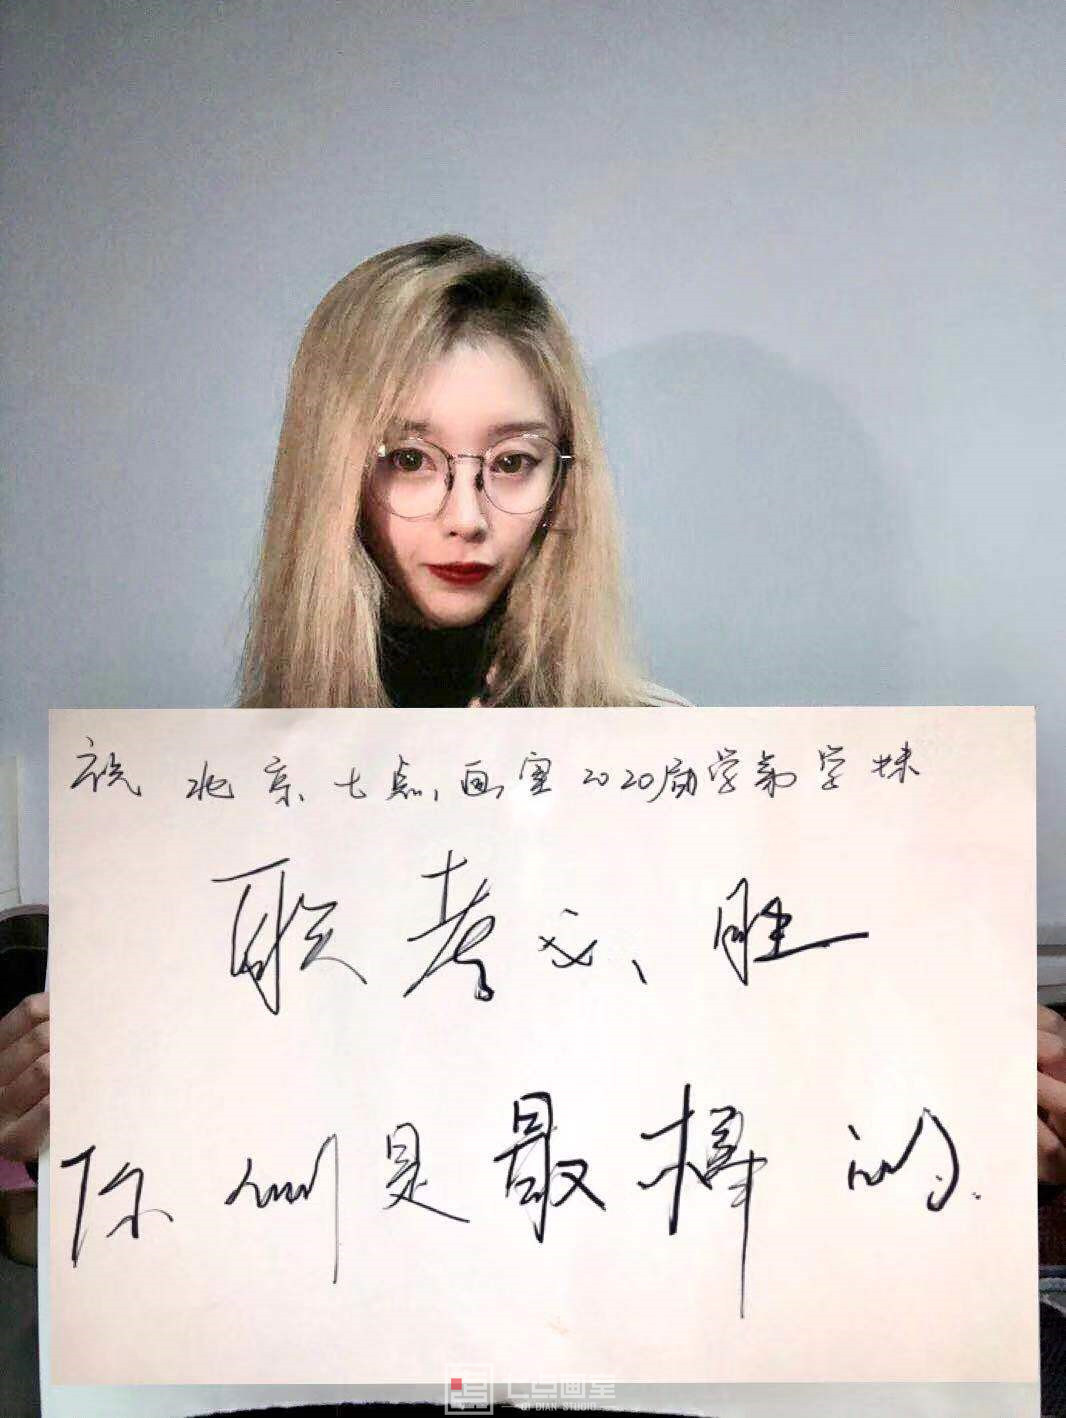 祝北京七点画室2020届学弟学妹
联考必胜
你们是最棒的.
七点画室
QI DIAN STUDIO